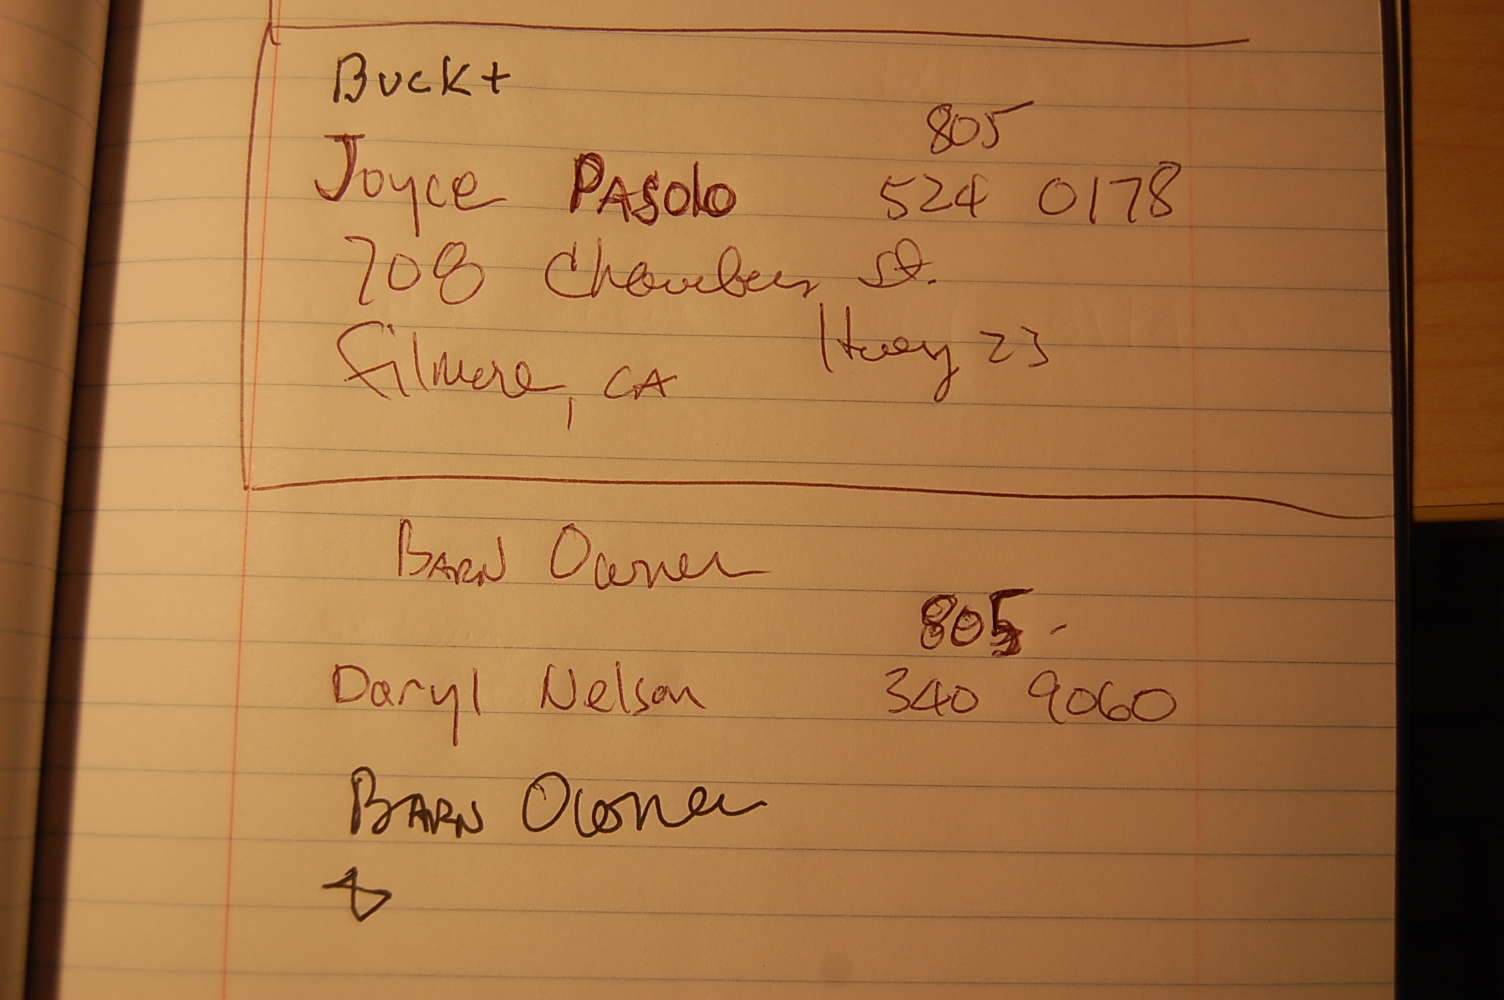 Buck +
805
Joyce PASOLO 524 0178
708 Chambers St.
Filmore, CA Hwy 23
BARN Owner
805-
Daryl Nelson 340 9060
BARN Owner